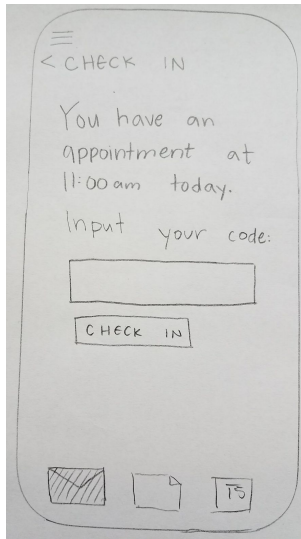 < CHECK IN
You have an
appointment at
11:00 am today.
Input your code:
CHECK IN